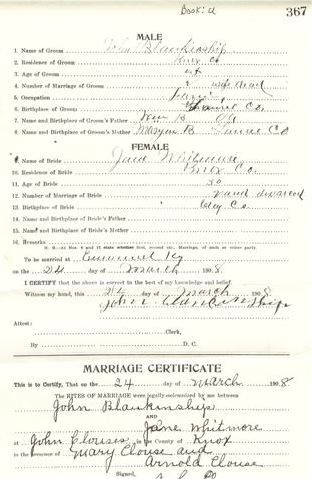 Book: U
367
MALE
1. Name of Groom John Blankinship
2. Residence of Groom Knox Co
3. Age of Groom
4. Number of Marriage of Groom 2 wife dead
5. Occupation Farming
6. Birthplace of Groom Co.
7. Name and Birthplace of Groom's Father Wm B
8. Name and Birthplace of Groom's Mother Maryan B Co
FEMALE
9. Name of Bride Jane Whitmore
10. Residence of Bride Knox Co.
11. Age of Bride 30
12. Number of Marriage of Bride
13. Birthplace of Bride Clay Co
14. Name and Birthplace of Bride's Father
15. Name and Birthplace of Bride's Mother
16. Remarks
To be married at Emanuel Ky
on the 24 day of March 1908
I CERTIFY that the above is correct to the best of my knowledge and belief.
Witness my hand, this 24 day of March 1908
John Blankinship
Attest:
Clerk,
By D. C.
MARRIAGE CERTIFICATE
This is to Certify, That on the 24 day of March 1908
The RITES OF MARRIAGE were legally solemnized by me between
John Blankinship
AND
Jane Whitmore
at John Clouses in the County of Knox
in the presence of Mary Clouse and
Arnold Clouse
Signed,